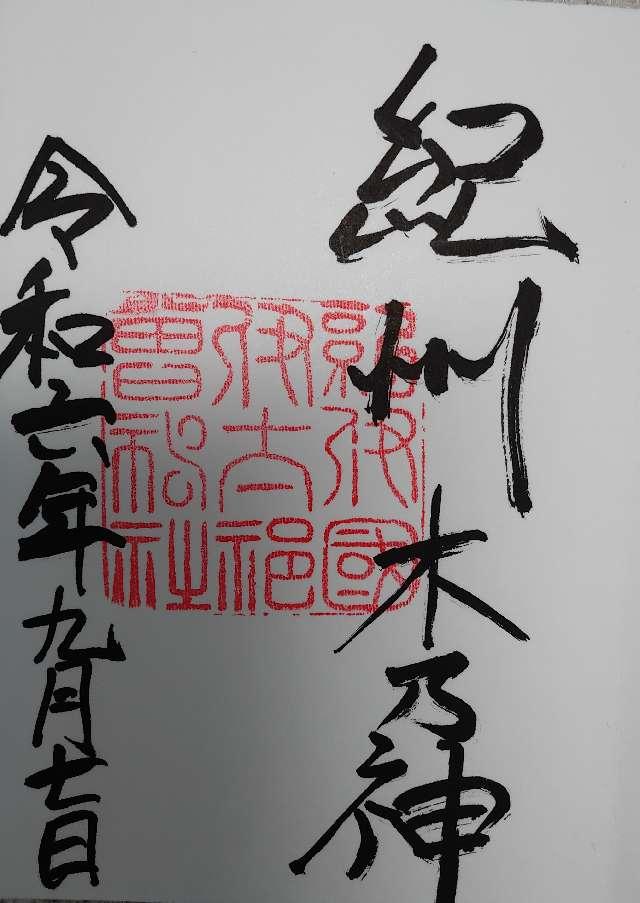 紀州木乃神
紀伊國
伊太祁
曾神社
令和六年九月七日